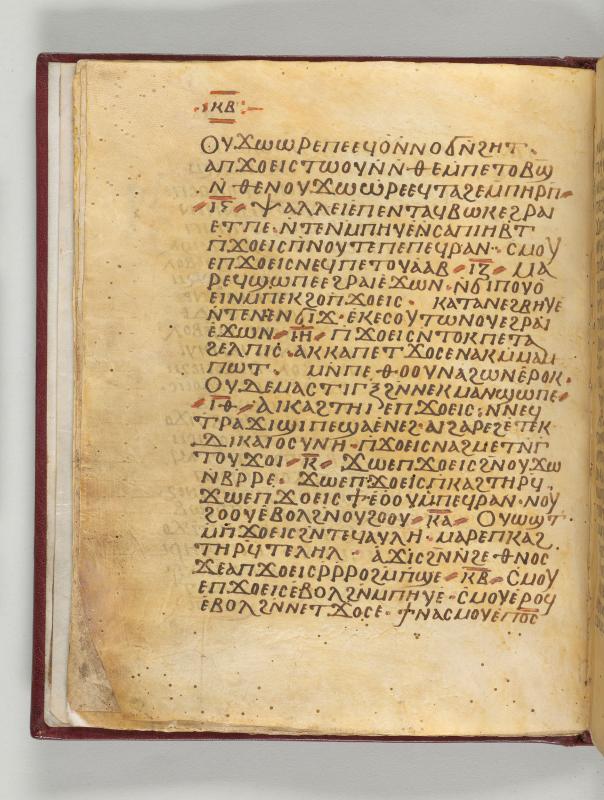 ⲕⲃ
ⲟⲩϫⲱⲱⲣⲉⲡⲉⲉϥⲟ̀ⲛⲛⲟϭⲛ̄ϩⲏⲧ·
ⲁⲡϫⲟⲉⲓⲥⲧⲱⲟⲩⲛ̀ⲛ̀ⲑⲉⲙ̄ⲡⲉⲧⲟⲃϣ̄
ⲛ̀ⲑⲉⲛⲟⲩϫⲱⲱⲣⲉⲉϥⲧⲁϩⲉⲙ̄ⲡⲏⲣⲡ·
ⲓ̅ⲋ̅ ⲯⲁⲗⲗⲉⲓⲉ̀ⲡⲉⲛⲧⲁϥⲃⲱⲕⲉϩⲣⲁⲓ
ⲉⲧⲡⲉ· ⲛ̄ⲧⲉⲛⲙⲡⲏⲩⲉⲛ̄ⲥⲁⲡⲓⲏⲃⲧ
ⲡ̄ϫⲟⲉⲓⲥⲡ̀ⲛⲟⲩⲧⲉⲡⲉⲡⲉϥⲣⲁⲛ· ⲥⲙⲟⲩ
ⲉⲡϫⲟⲉⲓⲥⲛⲉϥⲡⲉⲧⲟⲩⲁⲁⲃ ⲓ̅ⲍ̅ ⲙⲁ
ⲣⲉϥϣⲱⲡⲉⲉϩⲣⲁⲓⲉ̀ϫⲱⲛ· ⲛ̀ϭⲓⲡⲟⲩⲟ̀
ⲉⲓⲛⲙ̄ⲡⲉⲕϩⲟⲡ̄ϫⲟⲉⲓⲥ· ⲕⲁⲧⲁⲛⲉϩⲃⲏⲩⲉ
ⲛ̄ⲧⲉⲛⲉⲛϭⲓϫ· ⲉⲕⲉⲥⲟⲩⲧⲱⲛⲟⲩⲉϩⲣⲁⲓ
ⲉ̀ϫⲱⲛ ⲓ̅ⲏ̅ ⲡ̄ϫⲟⲉⲓⲥⲛ̄ⲧⲟⲕⲡⲉⲧⲁ
ϩⲉⲗⲡⲓⲥ· ⲁⲕⲕⲁⲡⲉⲧϫⲟⲥⲉⲛⲁⲕⲙ̄ⲙⲁⲙ̄
ⲡⲱⲧ· ⲙ̄ⲛ̄ⲡⲉⲑⲟⲟⲩⲛⲁϩⲱⲛⲉ̀ⲣⲟⲕ·
ⲟⲩⲇⲉⲙⲁⲥⲧⲓⲅⲝϩⲛⲛⲉⲕⲙⲁⲛϣⲱⲡⲉ
ⲓ̅ⲑ̅ ⲁⲓⲕⲁϩⲧⲏⲓⲉⲡ̄ϫⲟⲉⲓⲥ· ⲛ̄ⲛⲉϥ
ⲧⲣⲁϫⲓϣⲓⲡⲉϣⲁⲉⲛⲉϩ· ⲁⲓϩⲁⲣⲉϩⲉⲧⲉⲕ
ⲇⲓⲕⲁⲓⲟⲥⲩⲛⲏ· ⲡ̄ϫⲟⲉⲓⲥⲛⲁϩⲙⲉⲧⲛ̄ⲅ
ⲧⲟⲩϫⲟⲓ ⲕ̅ ϫⲱⲉⲡϫⲟⲉⲓⲥϩⲛⲟⲩϫⲱ
ⲛ̄ⲃⲣⲣⲉ· ϫⲱⲉⲡϫⲟⲉⲓⲥⲡⲕⲁϩⲧⲏⲣϥ·
ϫⲱⲉⲡϫⲟⲉⲓⲥϯⲉⲟ̀ⲟⲩⲙ̄ⲡⲉϥⲣⲁⲛ· ⲛⲟⲩ
ϩⲟⲟⲩⲉⲃⲟⲗϩⲛⲟⲩϩⲟⲟⲩ ⲕ̅ⲁ̅ ⲟⲩⲱϣⲧ
ⲙ̄ⲡ̄ϫⲟⲉⲓⲥϩⲛⲧⲉϥⲁⲩⲗⲏ· ⲙⲁⲣⲉⲡⲕⲁϩ
ⲧⲏⲣϥⲧⲉⲗⲏⲗ· ⲁϫⲓⲥϩⲛ̄ⲛϩⲉⲑⲛⲟⲥ
ϫⲉⲁⲡϫⲟⲉⲓⲥⲣ̄ⲣ̄ⲣⲟϩⲙ̄ⲡϣⲉ ⲕ̅ⲃ̅ ⲥⲙⲟⲩ
ⲉⲡϫⲟⲉⲓⲥⲉⲃⲟⲗϩⲛ̄ⲙⲡⲏⲩⲉ· ⲥⲙⲟⲩⲉⲣⲟϥ
ⲉⲃⲟⲗϩⲛ̀ⲛⲉⲧϫⲟⲥⲉ· ϯⲛⲁⲥⲙⲟⲩⲉⲡⲟ̅ⲥ̅